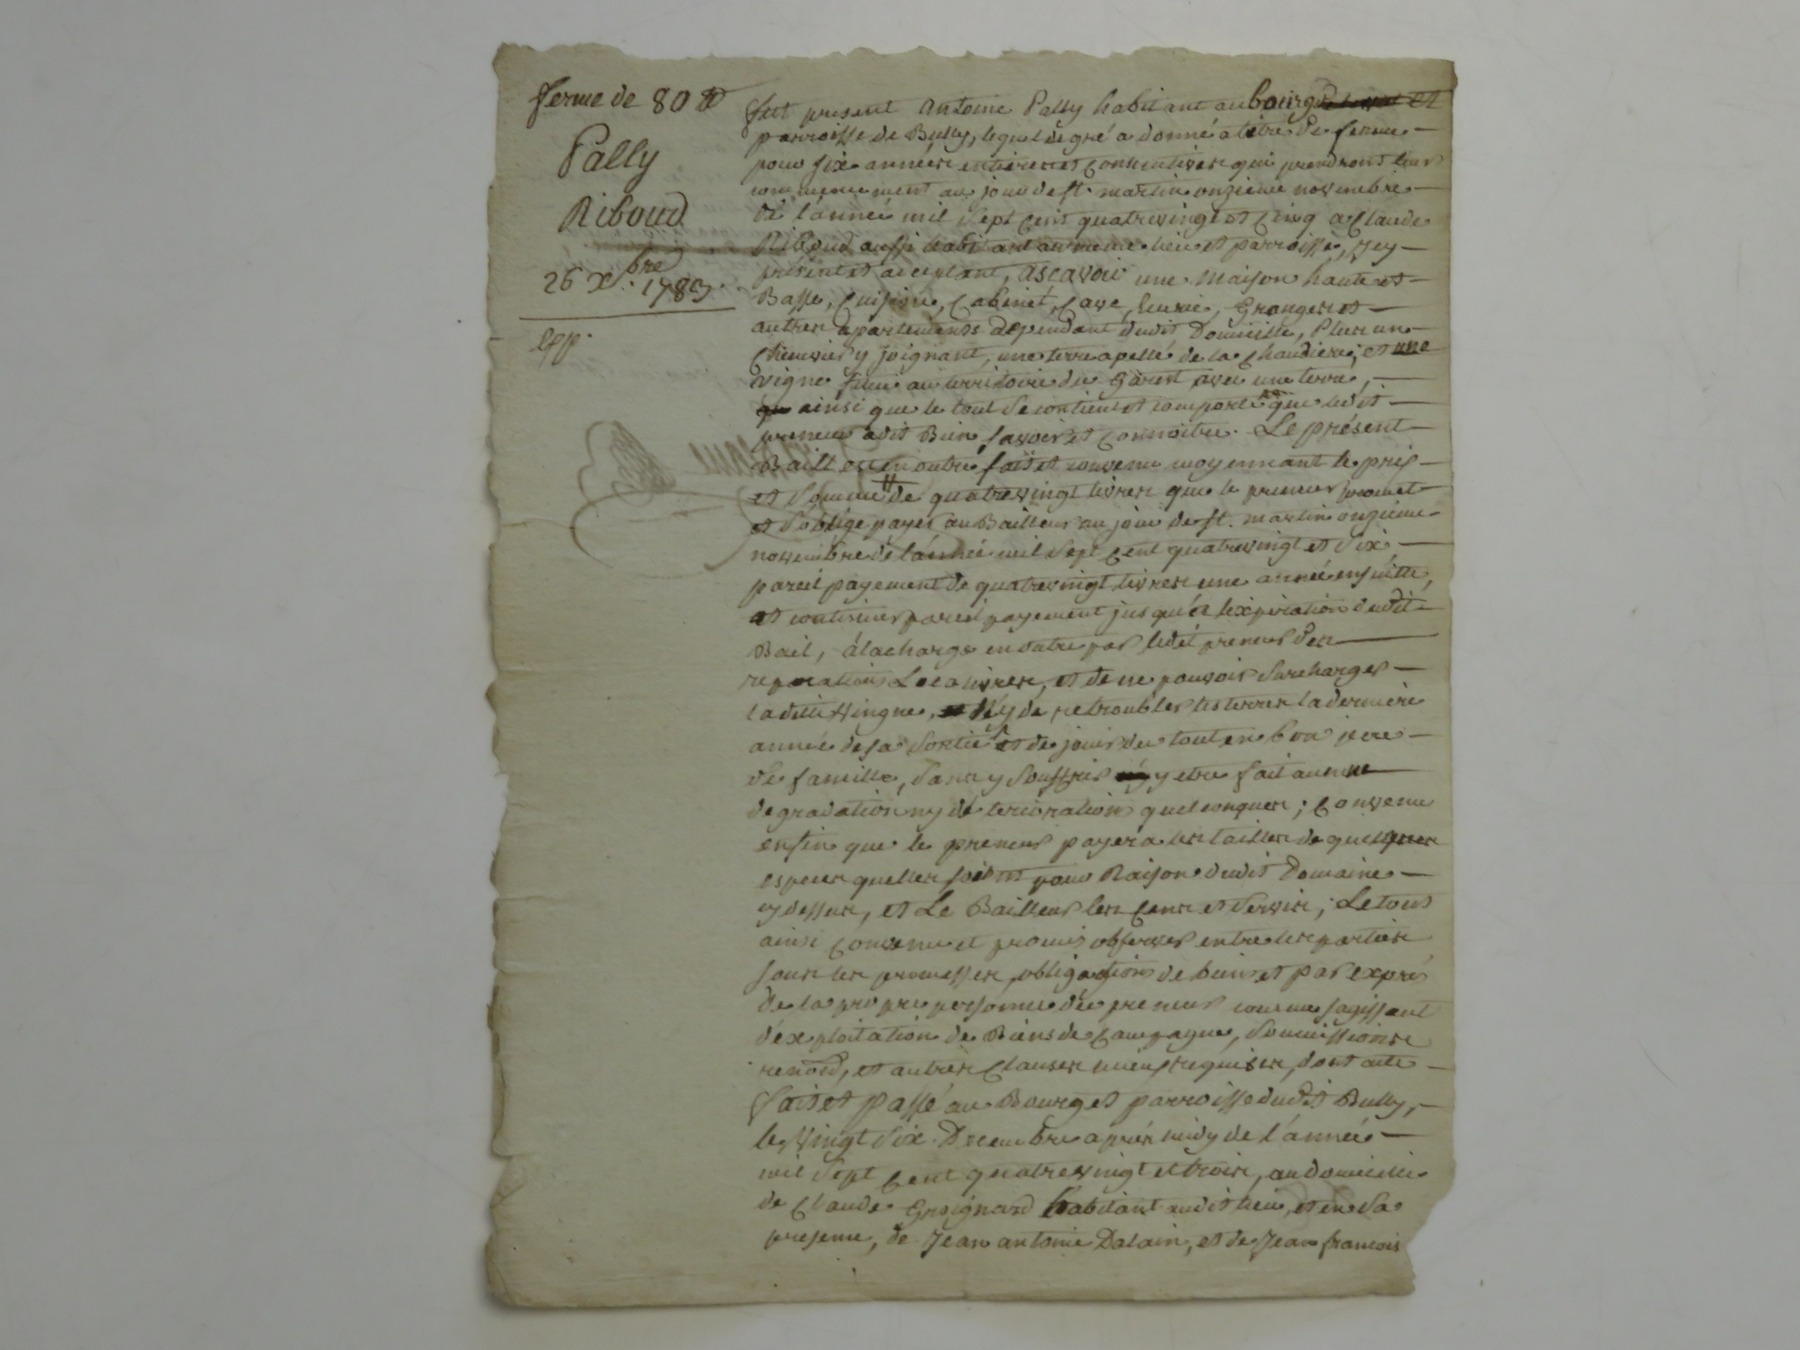 ferme de 80 ₶
Pally
Riboud
26 Xbre. 1783.
Exp.
fut present Antoine Pally habitant au bourg et
parroisse de Bully, lequel de gré a donné a titre de ferme
pour six années entieres et consecutives qui prendront leur
commencement au jour de st. martin onzieme novembre
de l'année mil sept cent quatrevingt et cinq a Claude
Riboud aussi habitant au meme lieu et parroisse, icy
présent et acceptant, ascavoir une maison haute et
Basse, Cuisine, Cabinet, Cave, Granges et
autres apartements dependant dudit Domicille, Plus un
Chenevier y joignant, une terre apellé de la Chaudiere, et une
vigne scituée au territoire du Garest avec une terre,
ainsi que le tout se contient et comporte que ledit
preneur a dit Bien savoir et connoitre. Le présent
Baill est en outre fait et convenu moyennant le prix
et somme de quatrevingt livres que le preneur promet
et s'oblige payer au Bailleur au jour de st. martin onzieme
novembre de l'année mil sept cent quatrevingt et six
pareil payement de quatrevingt livres une année ensuitte,
et continuer pareil payement jusqu'a l'expiration dudit
Bail, à la charge en outre par ledit preneur des
reparations Locatives, et de ne pouvoir surcharger
laditte vigne, ny de retroubler les terres la derniere
année de sa sortie et de jouir du tout en bon pere
de famille, sans y souffrir y etre fait aucune
degradation ny déterioration quelconques; Convenu
enfin que le preneur payera les tailles de quelques
especes quelles soient pour Raison dudit Domaine
cy dessus, et Le Bailleur les Cens et servis; Le tout
ainsi convenu et promis observer entre les parties
sous les promesses, obligations de biens et par exprés
de la propre personne du preneur comme sagissant
d'exploitation de Biens de Campagne, soumissions
renond, et autres Clauses mieux requises, dont acte
fait et passé au Bourg et parroisse dudit Bully,
le vingt six Decembre aprés midy de l'année
mil sept cent quatrevingt et trois, au domicille
de Claude Groignard habitant audit lieu, et en sa
presence, de Jean antoine Dalain, et de Jean francois